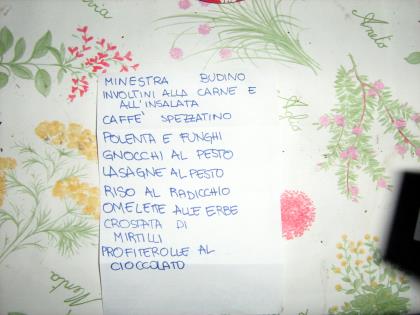 MINESTRA BUDINO
INVOLTINI ALLA CARNE E
ALL'INSALATA
CAFFE' SPEZZATINO
POLENTA E FUNGHI
GNOCCHI AL PESTO
LASAGNE AL PESTO
RISO AL RADICCHIO
OMELETTE ALLE ERBE
CROSTATA DI
MIRTILLI
PROFITEROLLE AL
CIOCCOLATO
Menta